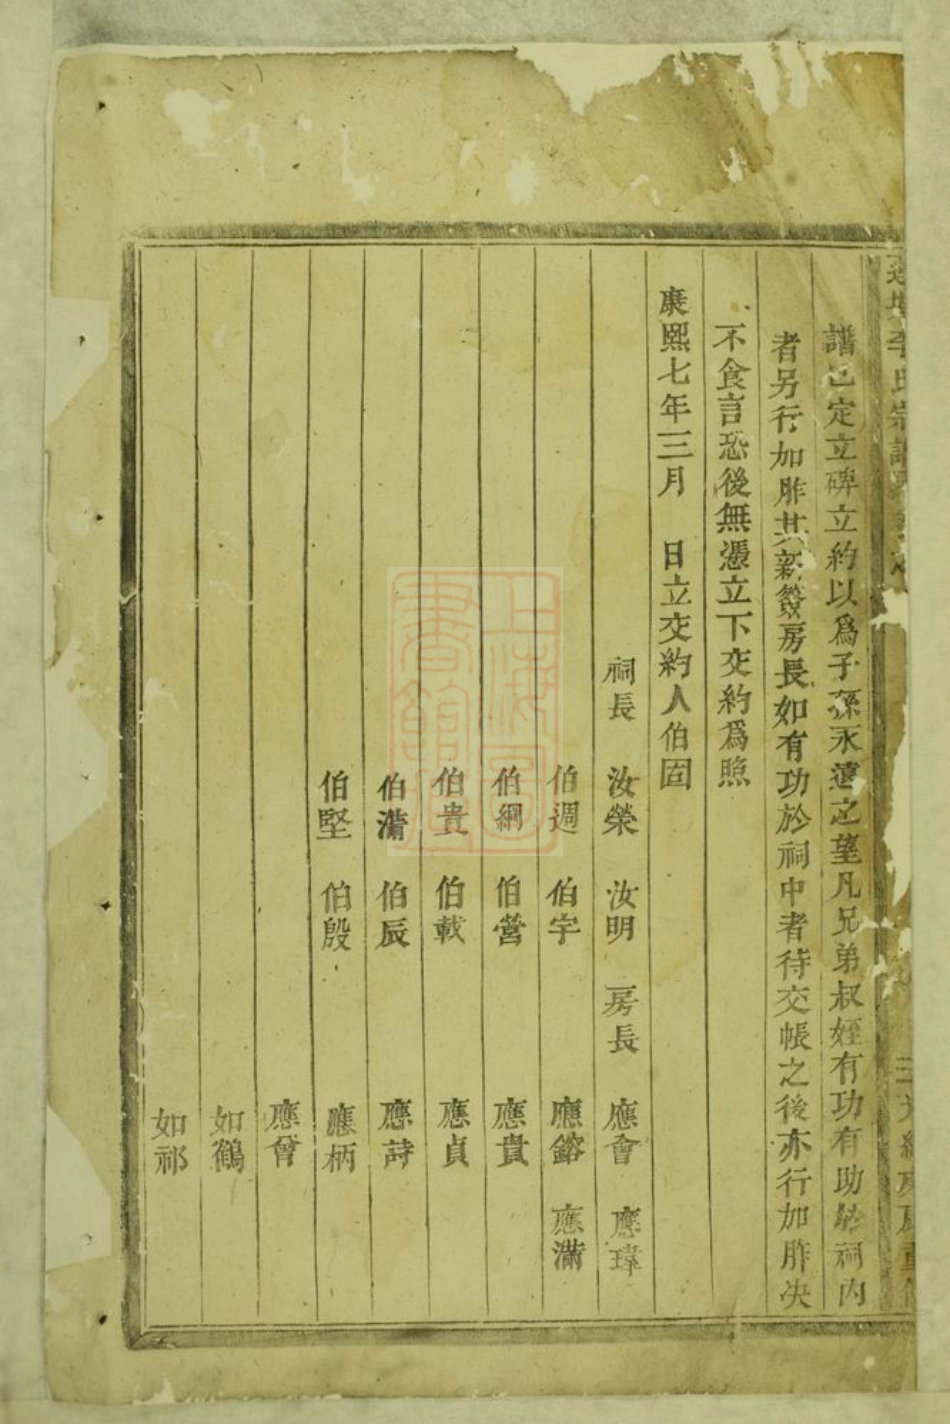 李氏宗譜
譜已定立碑立約以爲子孫永遠之望凡兄弟叔姪有功有助於祠內
者另行加胙其新簽房長如有功於祠中者待交帳之後亦行加胙决
不食言恐後無憑立下交約爲照
康熙七年三月 日立交約人伯固
祠長 汝榮 汝明 房長 應會 應瑋
伯週 伯宇 應鎔 應滿
伯綱 伯營 應貴
伯貴 伯載 應貞
伯滿 伯辰 應詩
伯堅 伯殷 應柄
應曾
如鶴
如祁
上海圖書館藏